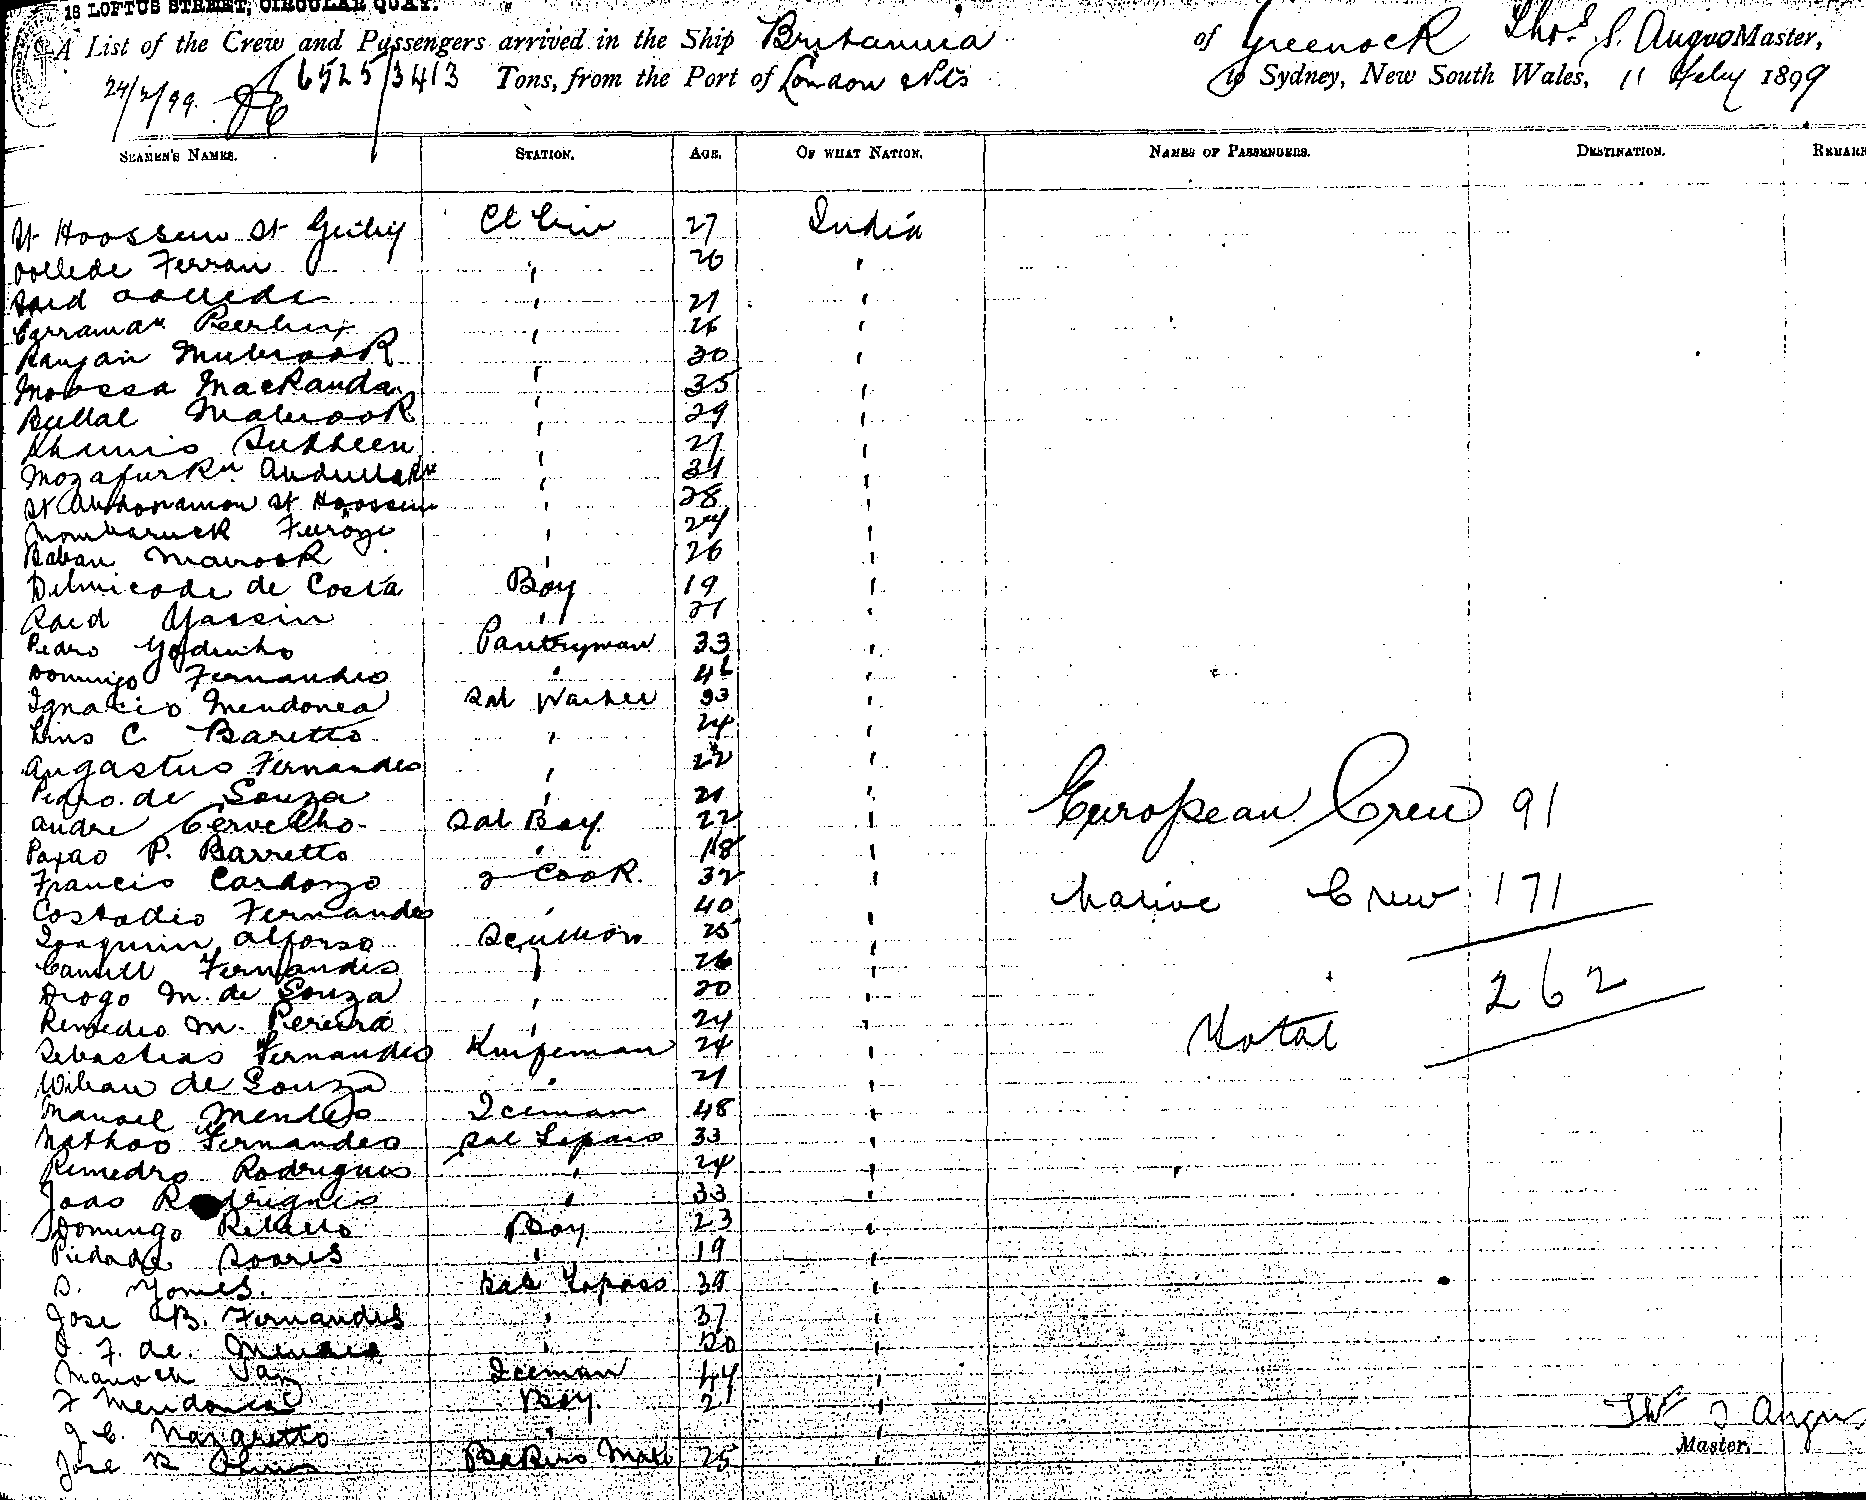 18 LOFTUS STREET, CIRCULAR QUAY.
A List of the Crew and Passengers arrived in the Ship Britannia of Greenock Thos. S. Angus Master,
6525/3413 Tons, from the Port of London &c to Sydney, New South Wales, 11 Feby 1899
24/2/99.
SEAMEN'S NAMES. STATION. AGE. OF WHAT NATION. NAMES OF PASSENGERS. DESTINATION. REMARK
St Hoossein St 27 India
Ferran " 26 "
Said " 21 "
" 26 "
Ramjan Mubrook " 30 "
Moossa Mackanda " 35 "
Bullal Mabrook " 29 "
" 27 "
Mozafurkn Abdullakn " 31 "
St St Hoossein " 28 "
Mombaruck Feroze " 24 "
Baban Mabrook " 26 "
de Costa Boy 19 "
Said Yassin " 21 "
Pedro Godinho Pantryman 33 "
Domingo Fernandes " 46 "
Ignacio Mendonca Sal Washer 33 "
Lino C Baretto " 24 "
Augastus Fernandes " 22 "
Pedro de Souza " 21 "
European Crew 91
Andre Cervelho Sal Boy 22 "
Paixao P. Barretto " 18 "
Francis Cardozo 2 Cook. 32 "
Native Crew 171
Costadio Fernandes " 40 "
Joaquim Alfonso Scullion 25 "
Camill Fernandes " 26 "
Diogo M. de Souza " 20 "
262
Remedio M. Pereira " 24 "
Total
Sebastiao Fernandes Knifeman 24 "
de Souza " 21 "
Manoel Mendes Iceman 48 "
Nathoo Fernandes Sal Topass 33 "
Remedro Rodrigues " 24 "
Joao Rodrigues " 33 "
Domingo Rebello Boy 23 "
Piedade Soares " 19 "
S. Gomes. Sal Topass 39 "
Jose B. Fernandes " 37 "
F. de " 20 "
Iceman 44 "
F Mendonca Boy 21 "
J. C. Nazaretto "
Jose R Bakers Mate 25 "
Thos S Angus
Master.